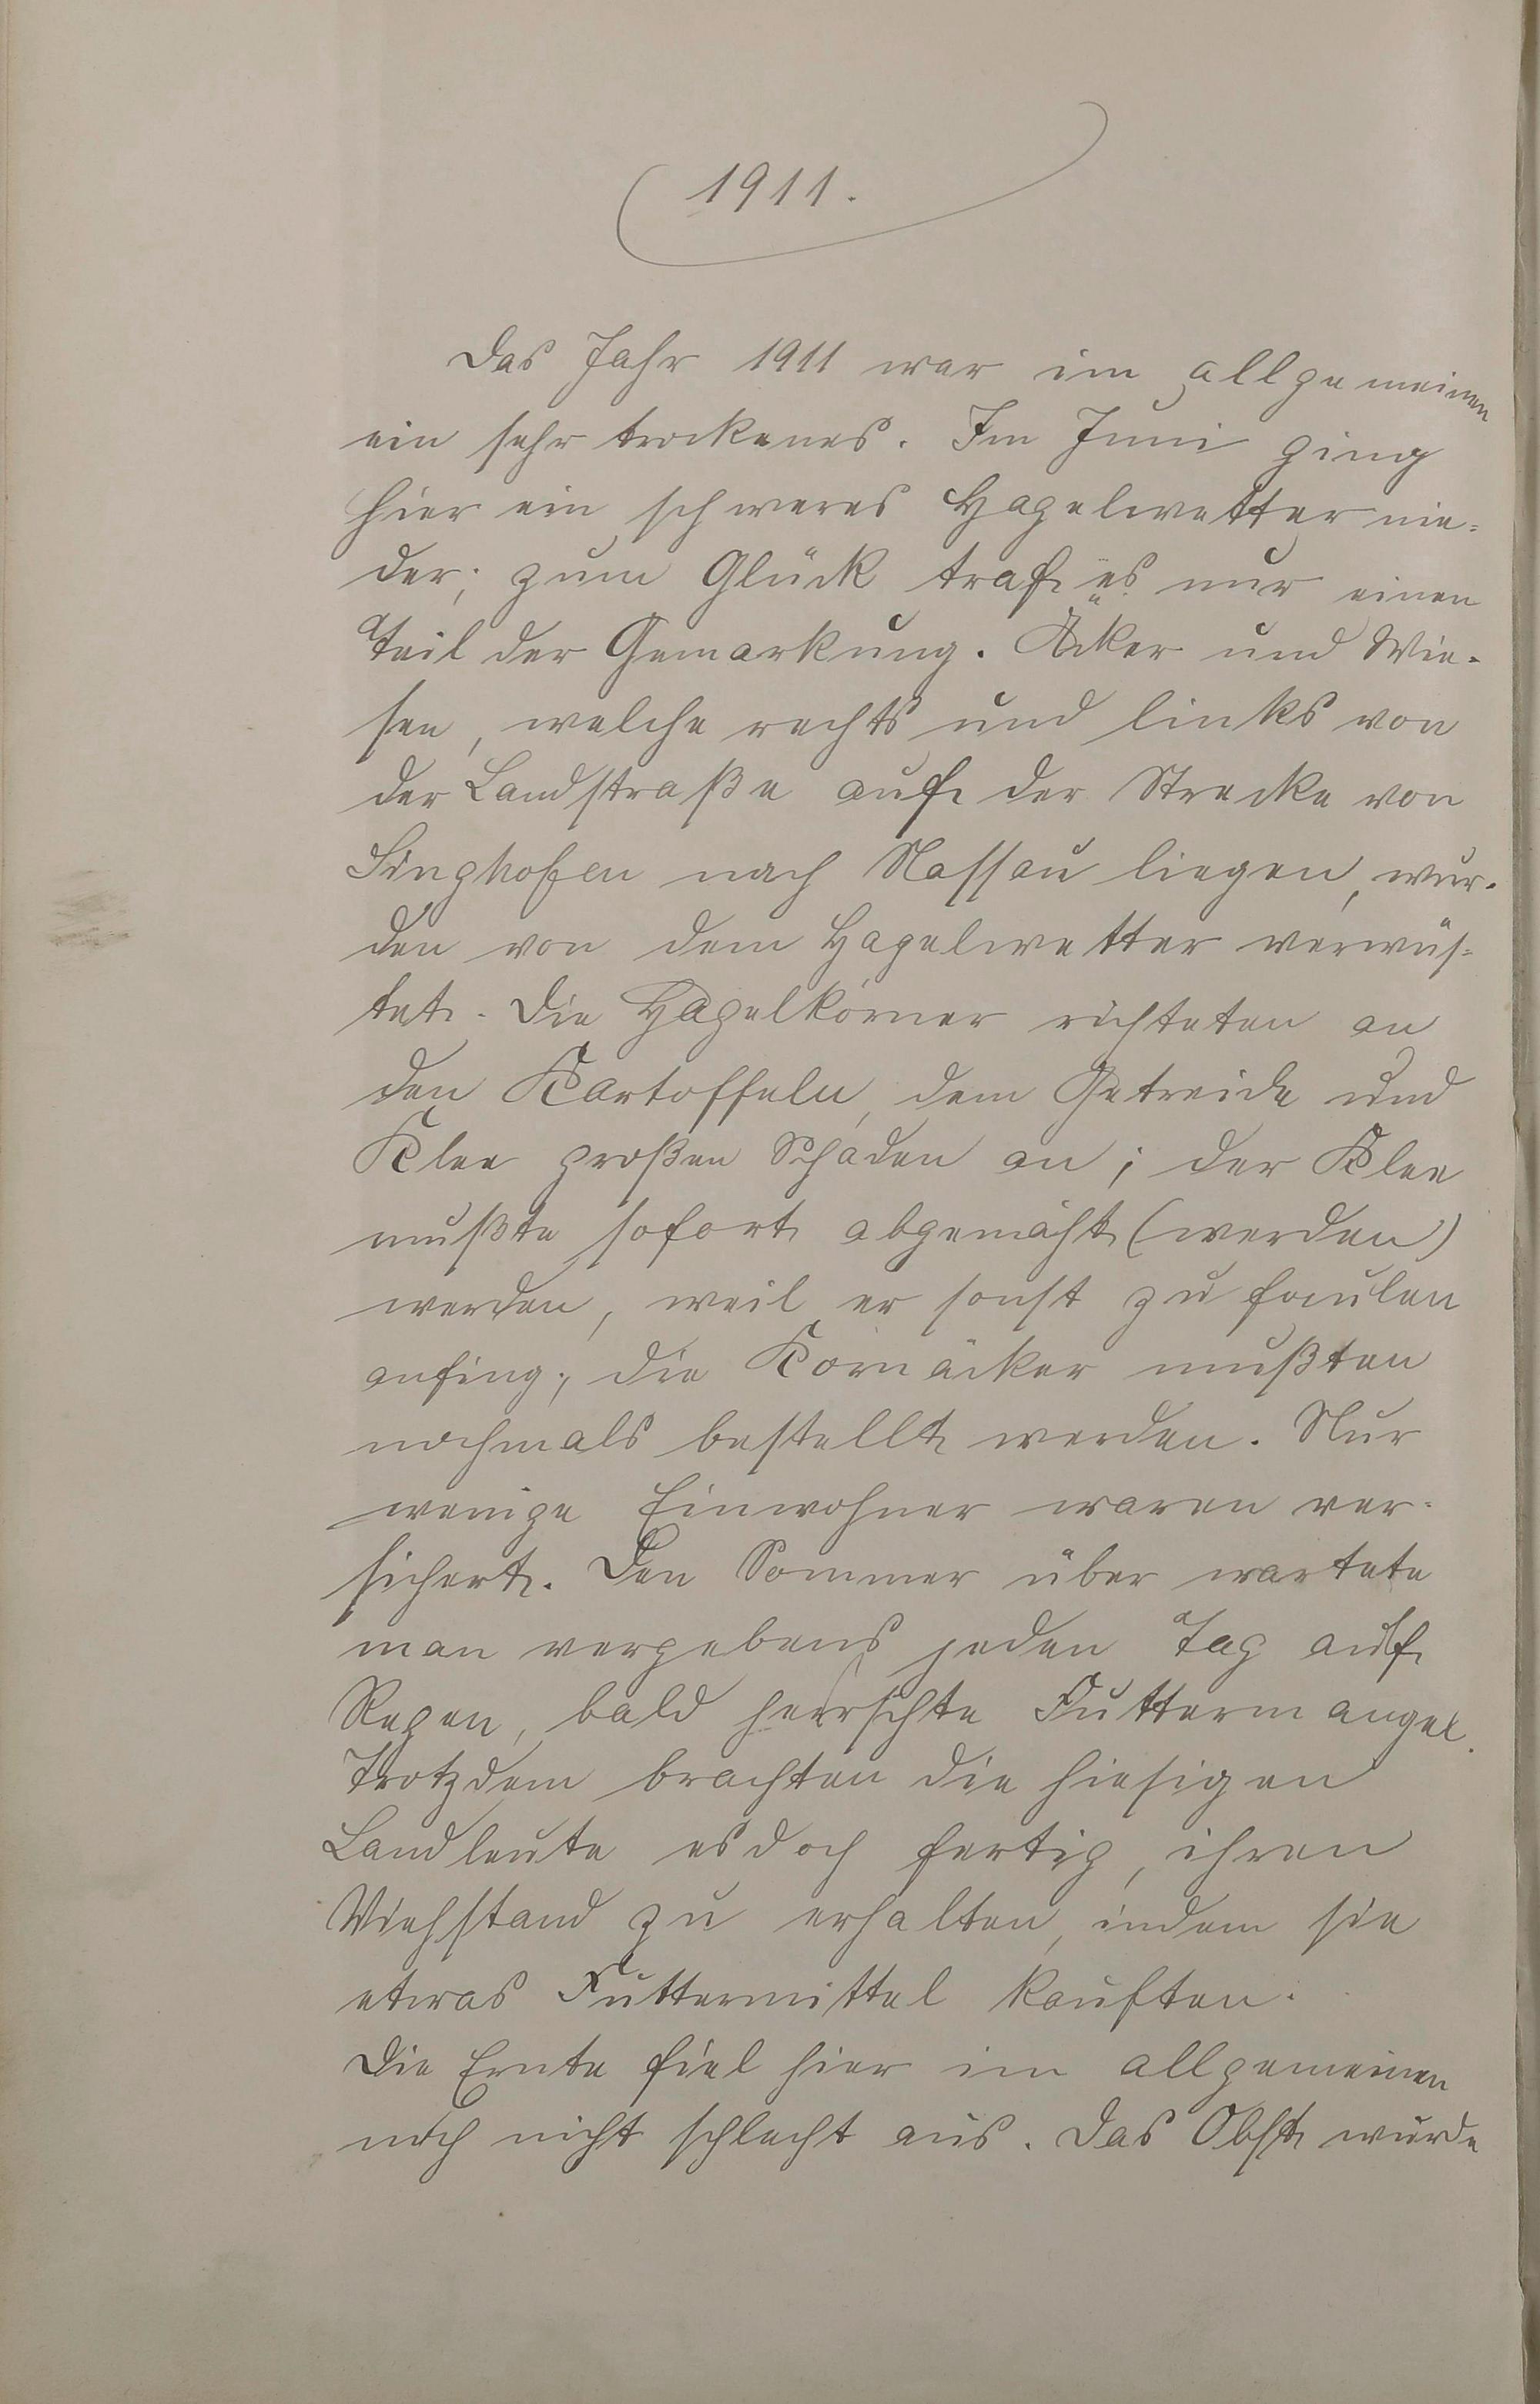 1911.
Das Jahr 1911 war im allgemeinen
ein sehr trockenes. Im Juni ging
hier ein schweres Hagelwetter nie-
der; zum Glück traf es nur einen
Teil der Gemarkung. Äcker und Wie-
sen, welche rechts und links von
der Landstraße auf der Strecke von
Singhofen nach Nassau liegen, wur-
den von dem Hagelwetter verwüs-
tet. Die Hagelkörner richteten an
den Kartoffeln, dem Getreide und
Klee großen Schaden an; der Klee
mußte sofort abgemäht (werden)
werden, weil er sonst zu faulen
anfing; die Kornäcker mußten
nochmals bestellt werden. Nur
wenige Einwohner waren ver-
sichert. Den Sommer über wartete
man vergebens jeden Tag auf
Regen, bald herrschte Futtermangel.
Trotzdem brachten die hiesigen
Landleute es doch fertig, ihren
Viehstand zu erhalten, indem sie
etwas Futtermittel kauften.
Die Ernte fiel hier im allgemeinen
noch nicht schlecht aus. Das Obst wurde